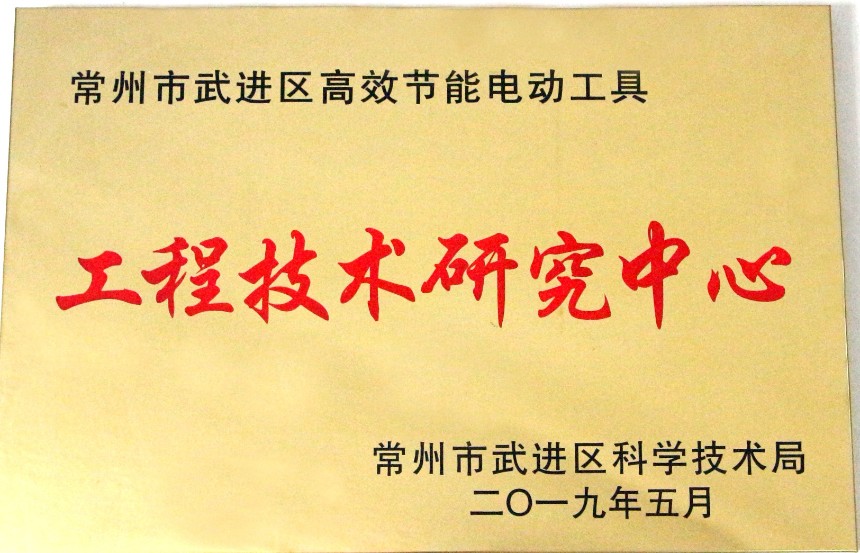 常州市武进区高效节能电动工具
工程技术研究中心
常州市武进区科学技术局
二〇一九年五月